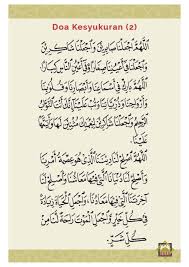 Doa Kesyukuran (2)
اَللّٰهُمَّ اجْعَلْنَا صَابِرِيْنَ وَاجْعَلْنَا شَاكِرِيْنَ
وَاجْعَلْنَا فِيْ أَعْيُنِنَا صِغَارًا وَفِيْ أَعْيُنِ النَّاسِ كِبَارًا
اَللّٰهُمَّ بَارِكْ فِيْ أَسْمَاعِنَا وَأَبْصَارِنَا وَقُلُوْبِنَا
وَأَزْوَاجِنَا وَذُرِّيَّاتِنَا وَتُبْ عَلَيْنَا إِنَّكَ أَنْتَ التَّوَّابُ
الرَّحِيْمُ وَاجْعَلْنَا شَاكِرِيْنَ لِنِعْمَتِكَ مُثْنِيْنَ بِهَا وَأَتِمَّهَا
عَلَيْنَا.
اَللّٰهُمَّ أَصْلِحْ لَنَا دِيْنَنَا الَّذِيْ هُوَ عِصْمَةُ أَمْرِنَا
وَأَصْلِحْ لَنَا دُنْيَانَا الَّتِيْ فِيْهَا مَعَاشُنَا وَأَصْلِحْ لَنَا
آخِرَتَنَا الَّتِيْ فِيْهَا مَعَادُنَا وَاجْعَلِ الْحَيَاةَ زِيَادَةً
لَنَا فِيْ كُلِّ خَيْرٍ وَاجْعَلِ الْمَوْتَ رَاحَةً لَنَا مِنْ
كُلِّ شَرٍّ.